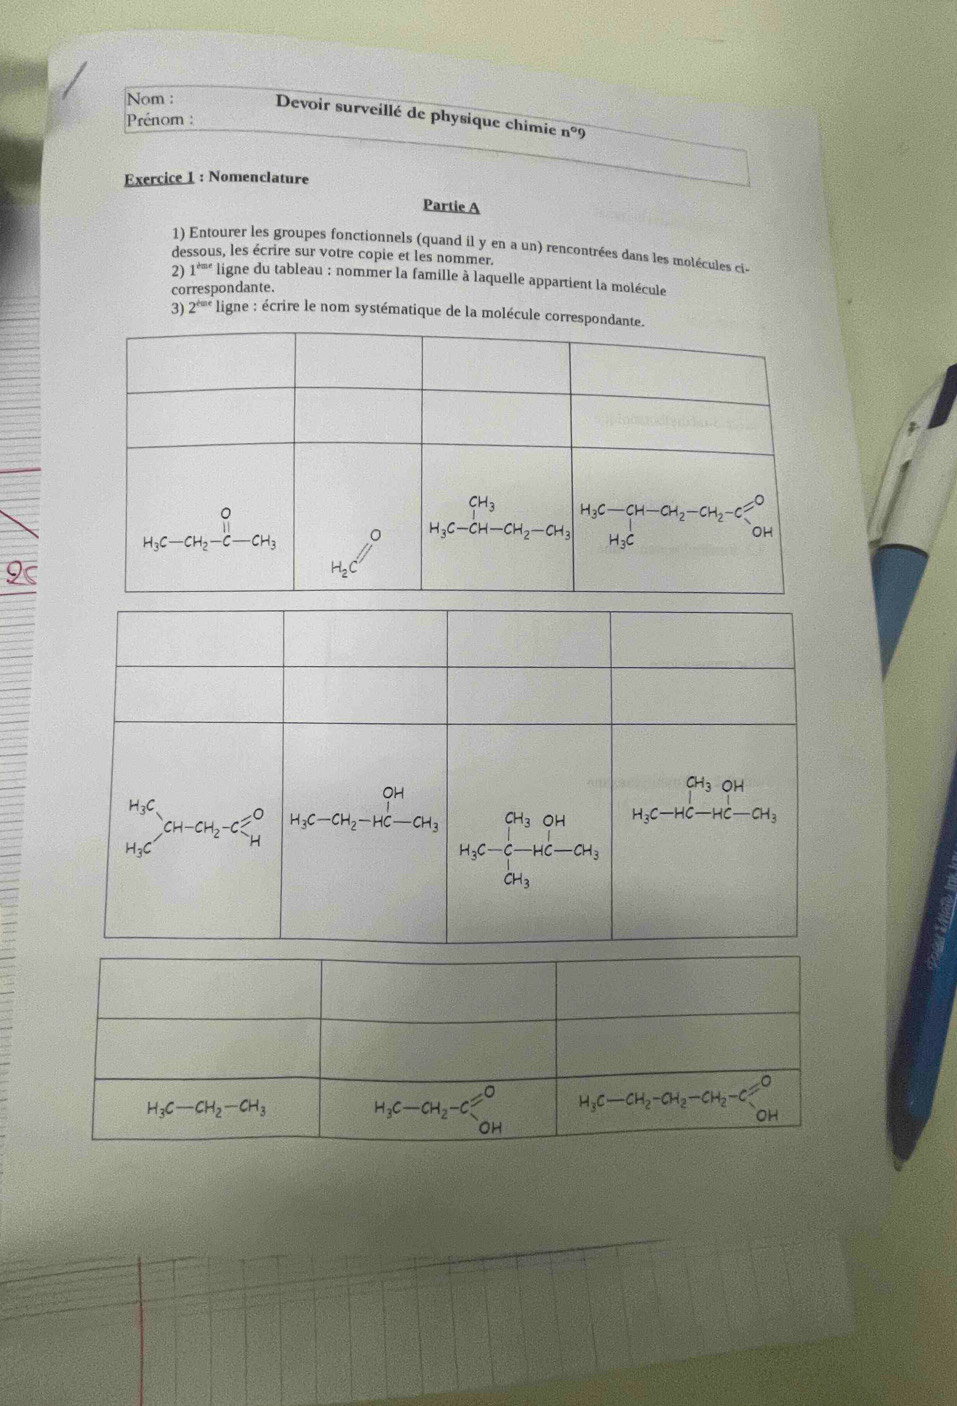 Nom :
Prénom :
Devoir surveillé de physique chimie n°9
Exercice 1 : Nomenclature
Partie A
1) Entourer les groupes fonctionnels (quand il y en a un) rencontrées dans les molécules ci-
dessous, les écrire sur votre copie et les nommer.
2) 1ème ligne du tableau : nommer la famille à laquelle appartient la molécule
correspondante.
3) 2ème ligne : écrire le nom systématique de la molécule correspondante.
O
H₃C—CH₂—C—CH₃
O
H₂C
CH₃
H₃C—CH—CH₂—CH₃
H₃C—CH—CH₂—CH₂—C
O
OH
H₃C
H₃C
CH—CH₂—C
O
H
H₃C
OH
H₃C—CH₂—HC—CH₃
CH₃ OH
H₃C—C—HC—CH₃
CH₃
CH₃ OH
H₃C—HC—HC—CH₃
H₃C—CH₂—CH₃
H₃C—CH₂—C
O
OH
H₃C—CH₂—CH₂—CH₂—C
O
OH